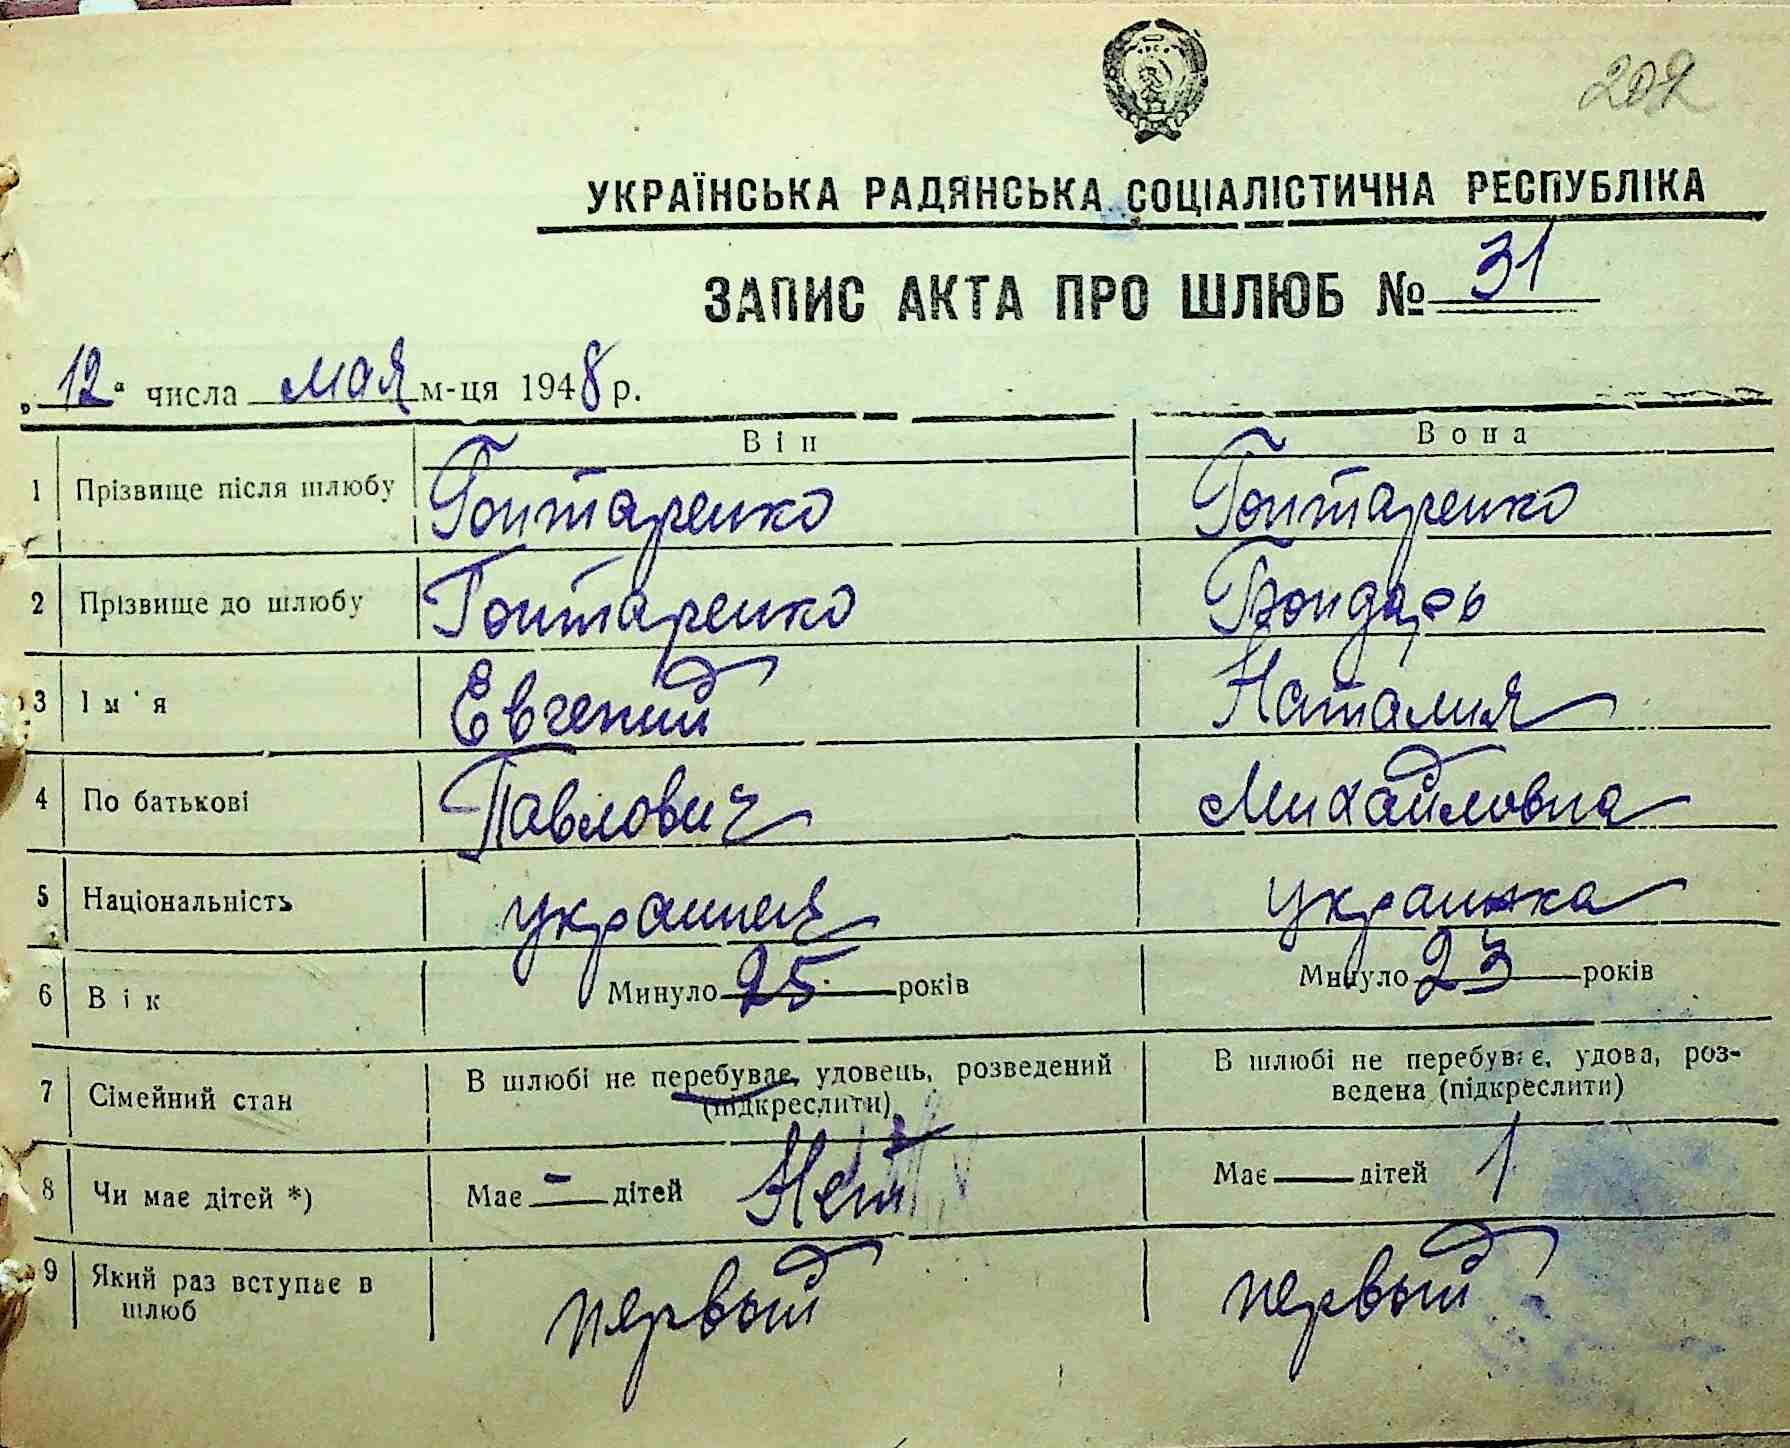 202
УКРАЇНСЬКА РАДЯНСЬКА СОЦІАЛІСТИЧНА РЕСПУБЛІКА
ЗАПИС АКТА ПРО ШЛЮБ № 31
„12“ числа мая м-ця 1948 р.
Він Вона
1 Прізвище після шлюбу Гонтаренко Гонтаренко
2 Прізвище до шлюбу Гонтаренко Бондарь
3 Ім'я Евгений Наталия
4 По батькові Павлович Михайловна
5 Національність украинец украинка
6 Вік Минуло 25 років Минуло 23 років
7 Сімейний стан В шлюбі не перебуває, удовець, розведений В шлюбі не перебуває, удова, роз-
(підкреслити) ведена (підкреслити)
8 Чи має дітей *) Має - дітей Нет Має дітей 1
9 Який раз вступає в первый первый
шлюб